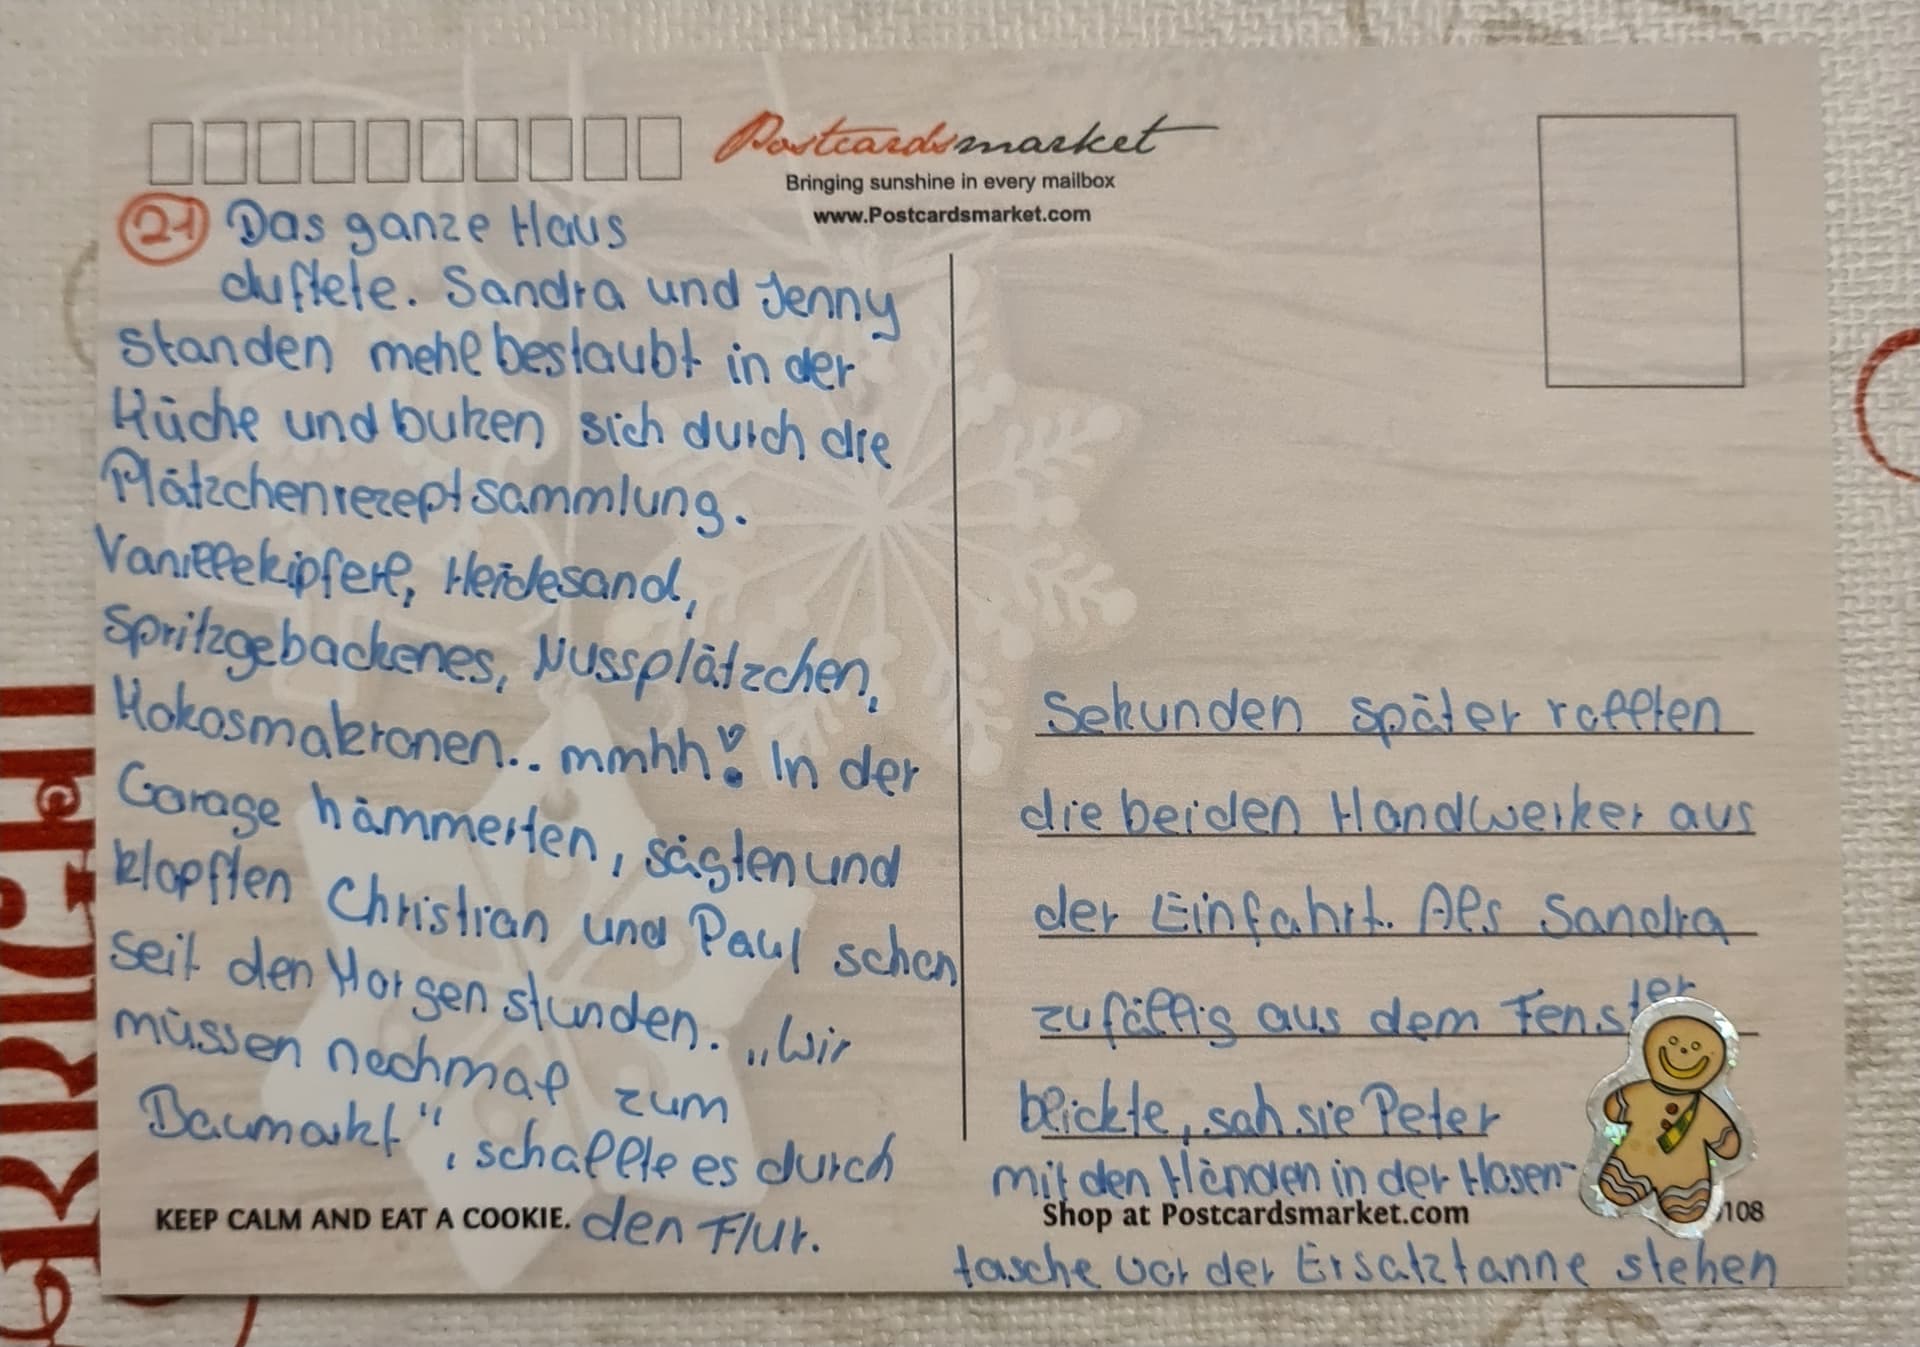 Postcardsmarket
Bringing sunshine in every mailbox
www.Postcardsmarket.com
21 Das ganze Haus
duftete. Sandra und Jenny
standen mehlbestaubt in der
Küche und buken sich durch die
Plätzchenrezeptsammlung.
Vanillekipferl, Heidesand,
Spritzgebackenes, Nussplätzchen,
Kokosmakronen.. mmhh! In der
Garage hämmerten, sägten und
klopften Christian und Paul schon
seit den Morgenstunden. „Wir
müssen nochmal zum
Baumarkt", schallte es durch
den Flur.
KEEP CALM AND EAT A COOKIE.
Sekunden später rollten
die beiden Handwerker aus
der Einfahrt. Als Sandra
zufällig aus dem Fenster
blickte, sah sie Peter
mit den Händen in der Hosen-
Shop at Postcardsmarket.com
108
tasche vor der Ersatztanne stehen